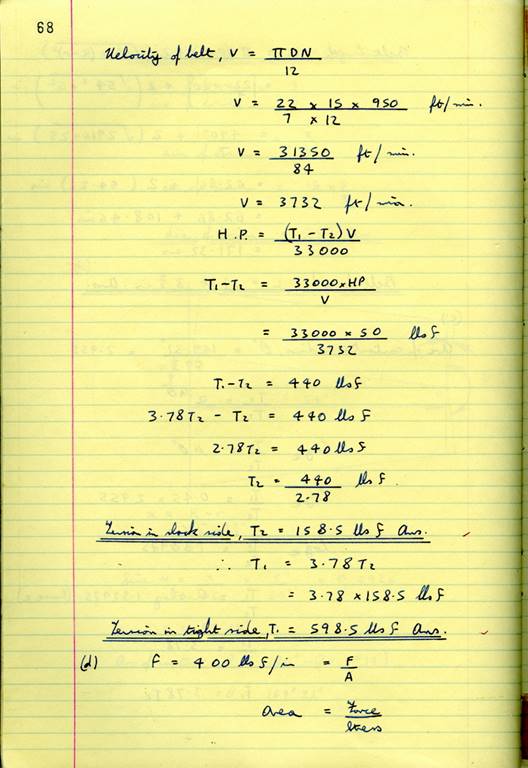 68
Velocity of belt, V = πDN / 12
V = 22 x 15 x 950 / 7 x 12 ft/min.
V = 31350 / 84 ft/min.
V = 3732 ft/min.
H.P. = (T1 - T2)V / 33000
T1-T2 = 33000xHP / V
= 33000 x 50 / 3732 lbs f
T1-T2 = 440 lbs f
3.78T2 - T2 = 440 lbs f
2.78T2 = 440 lbs f
T2 = 440 / 2.78 lbs f.
Tension in slack side, T2 = 158.5 lbs f Ans.
∴ T1 = 3.78T2
= 3.78 x 158.5 lbs f
Tension in tight side, T1 = 598.5 lbs f Ans.
(d) f = 400 lbs f/in = F / A
area = Force / stress